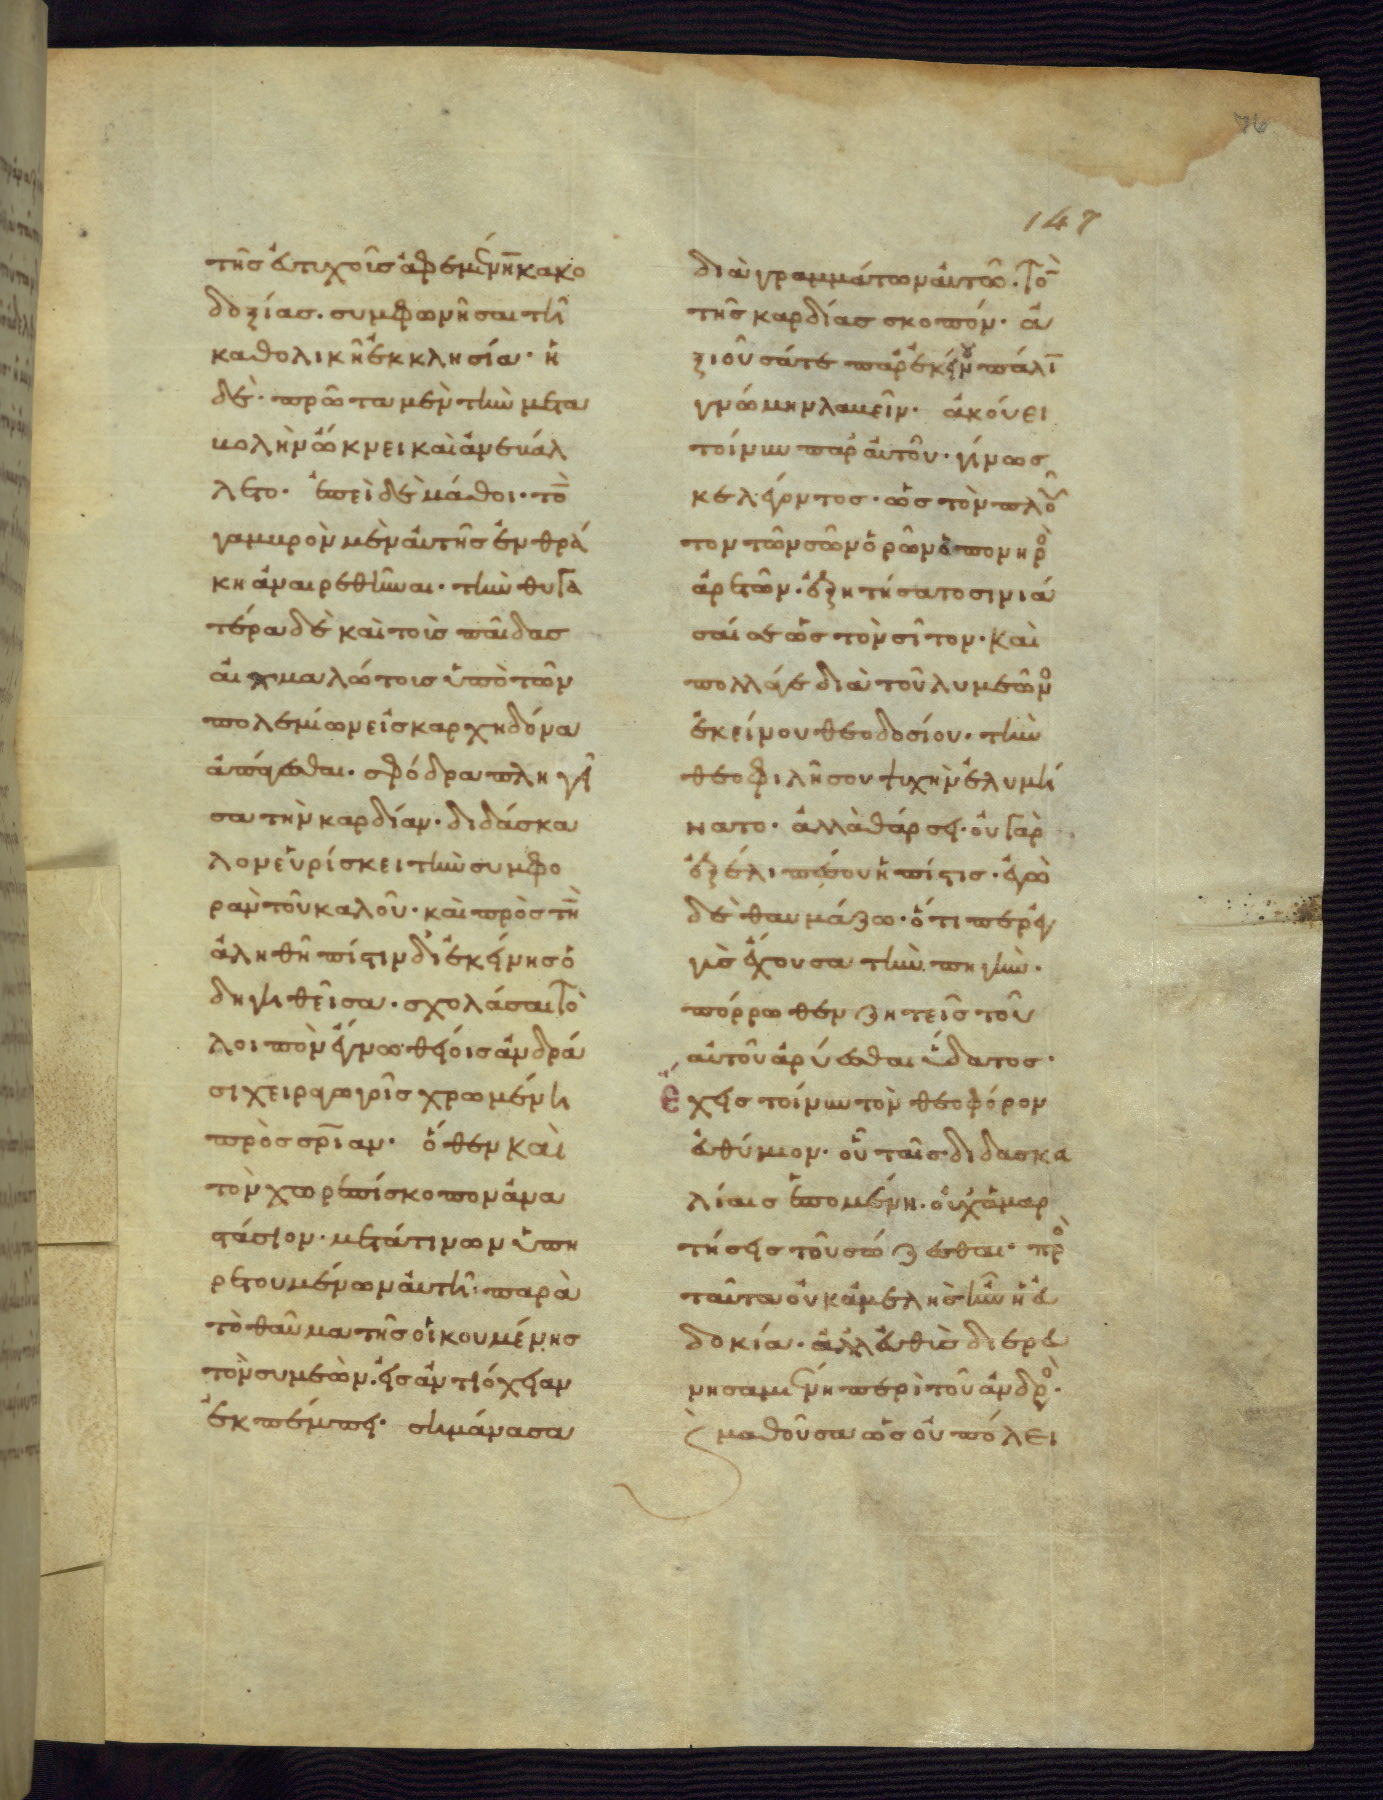 76
147
τῆς εὐτυχοῦς ἀφεμένην κακο
δοξίας. συμφωνῆσαι τῆι
καθολικῆ ἐκκλησία· ἡ
δὲ· πρῶτα μὲν τὴν μετα
βολὴν ὤκνει καὶ ἀνεβάλ
λετο. ἐπεὶ δὲ μάθοι· τὸν
γαμβρὸν μὲν αὐτῆς ἐν θρά
κη ἀναιρεθῆναι· τὴν θυγα
τέρα δὲ καὶ τοὺς παῖδας
αἰχμαλώτους ὑπὸ τῶν
πολεμίων εἰς καρχηδόνα
ἀπῆχθαι· σφόδρα πληγεῖ
σα τὴν καρδίαν· διδάσκα
λον εὑρίσκει τὴν συμφο
ρὰν τοῦ καλοῦ· καὶ πρὸς τὴν
ἀληθῆ πίστιν δι' ἐκείνης ὁ
δηγηθεῖσα. σχολάσαι τὸ
λοιπὸν ἔγνω· θείοις ἀνδρά
σι χειραγωγοῖς χρωμένη
πρὸς σωτηρίαν· ὅθεν καὶ
τὸν χωρεπίσκοπον ἀνα
στάσιον· μετά τινων ὑπη
ρετουμένων αὐτῆι· παρὰ
τὸ θαῦμα τῆς οἰκουμένης
τὸν συμεὼν. εἰς ἀντιόχειαν
ἐκπέμπει· σημάνασα
διὰ γραμμάτων αὐτῶ. τὸν
τῆς καρδίας σκοπόν· ἀ
ξιοῦσά τε παρ' ἐκείνου πάλιν
γνώμην λαβεῖν· ἀκούει
τοίνυν παρ' αὐτοῦ· γίνωσ
κε λέγοντος· ὡς τὸν πλοῦ
τον τῶν σῶν ὁρῶν ὁ πονηρὸς
ἀρετῶν· ἐξητήσατο σινιά
σαί σε ὡς τὸν σῖτον· καὶ
πολλά γε διὰ τοῦ λυμεῶνος
ἐκείνου θεοδοσίου· τὴν
θεοφιλῆ σου ψυχὴν ἐλυμή
νατο· ἀλλὰ θάρσει· οὐ γὰρ
ἐξέλιπέ σου ἡ πίστις· ἐγὼ
δὲ θαυμάζω· ὅτιπερ ἐγ
γὺς ἔχουσα τὴν πηγὴν·
πόρρωθεν ζητεῖς τοῦ
αὐτοῦ ἀρύεσθαι ὕδατος·
Ἔχεις τοίνυν τὸν θεοφόρον
εὐθύμιον· οὗ ταῖς διδασκα
λίαις ἑπομένη· οὐχ ἁμαρ
τήσεις τοῦ σώζεσθαι· πρὸς
ταῦτα οὐκ ἀμελὴς ἦν ἡ εὐ
δοκία· ἀλλ' εὐθὺς διερευ
νησαμένη περὶ τοῦ ἀνδρὸς·
καὶ μαθοῦσα ὡς οὐ πόλει